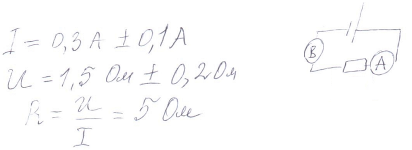 I = 0,3 А ± 0,1 А
U = 1,5 Ом ± 0,2 Ом
R = U/I = 5 Ом
В
А